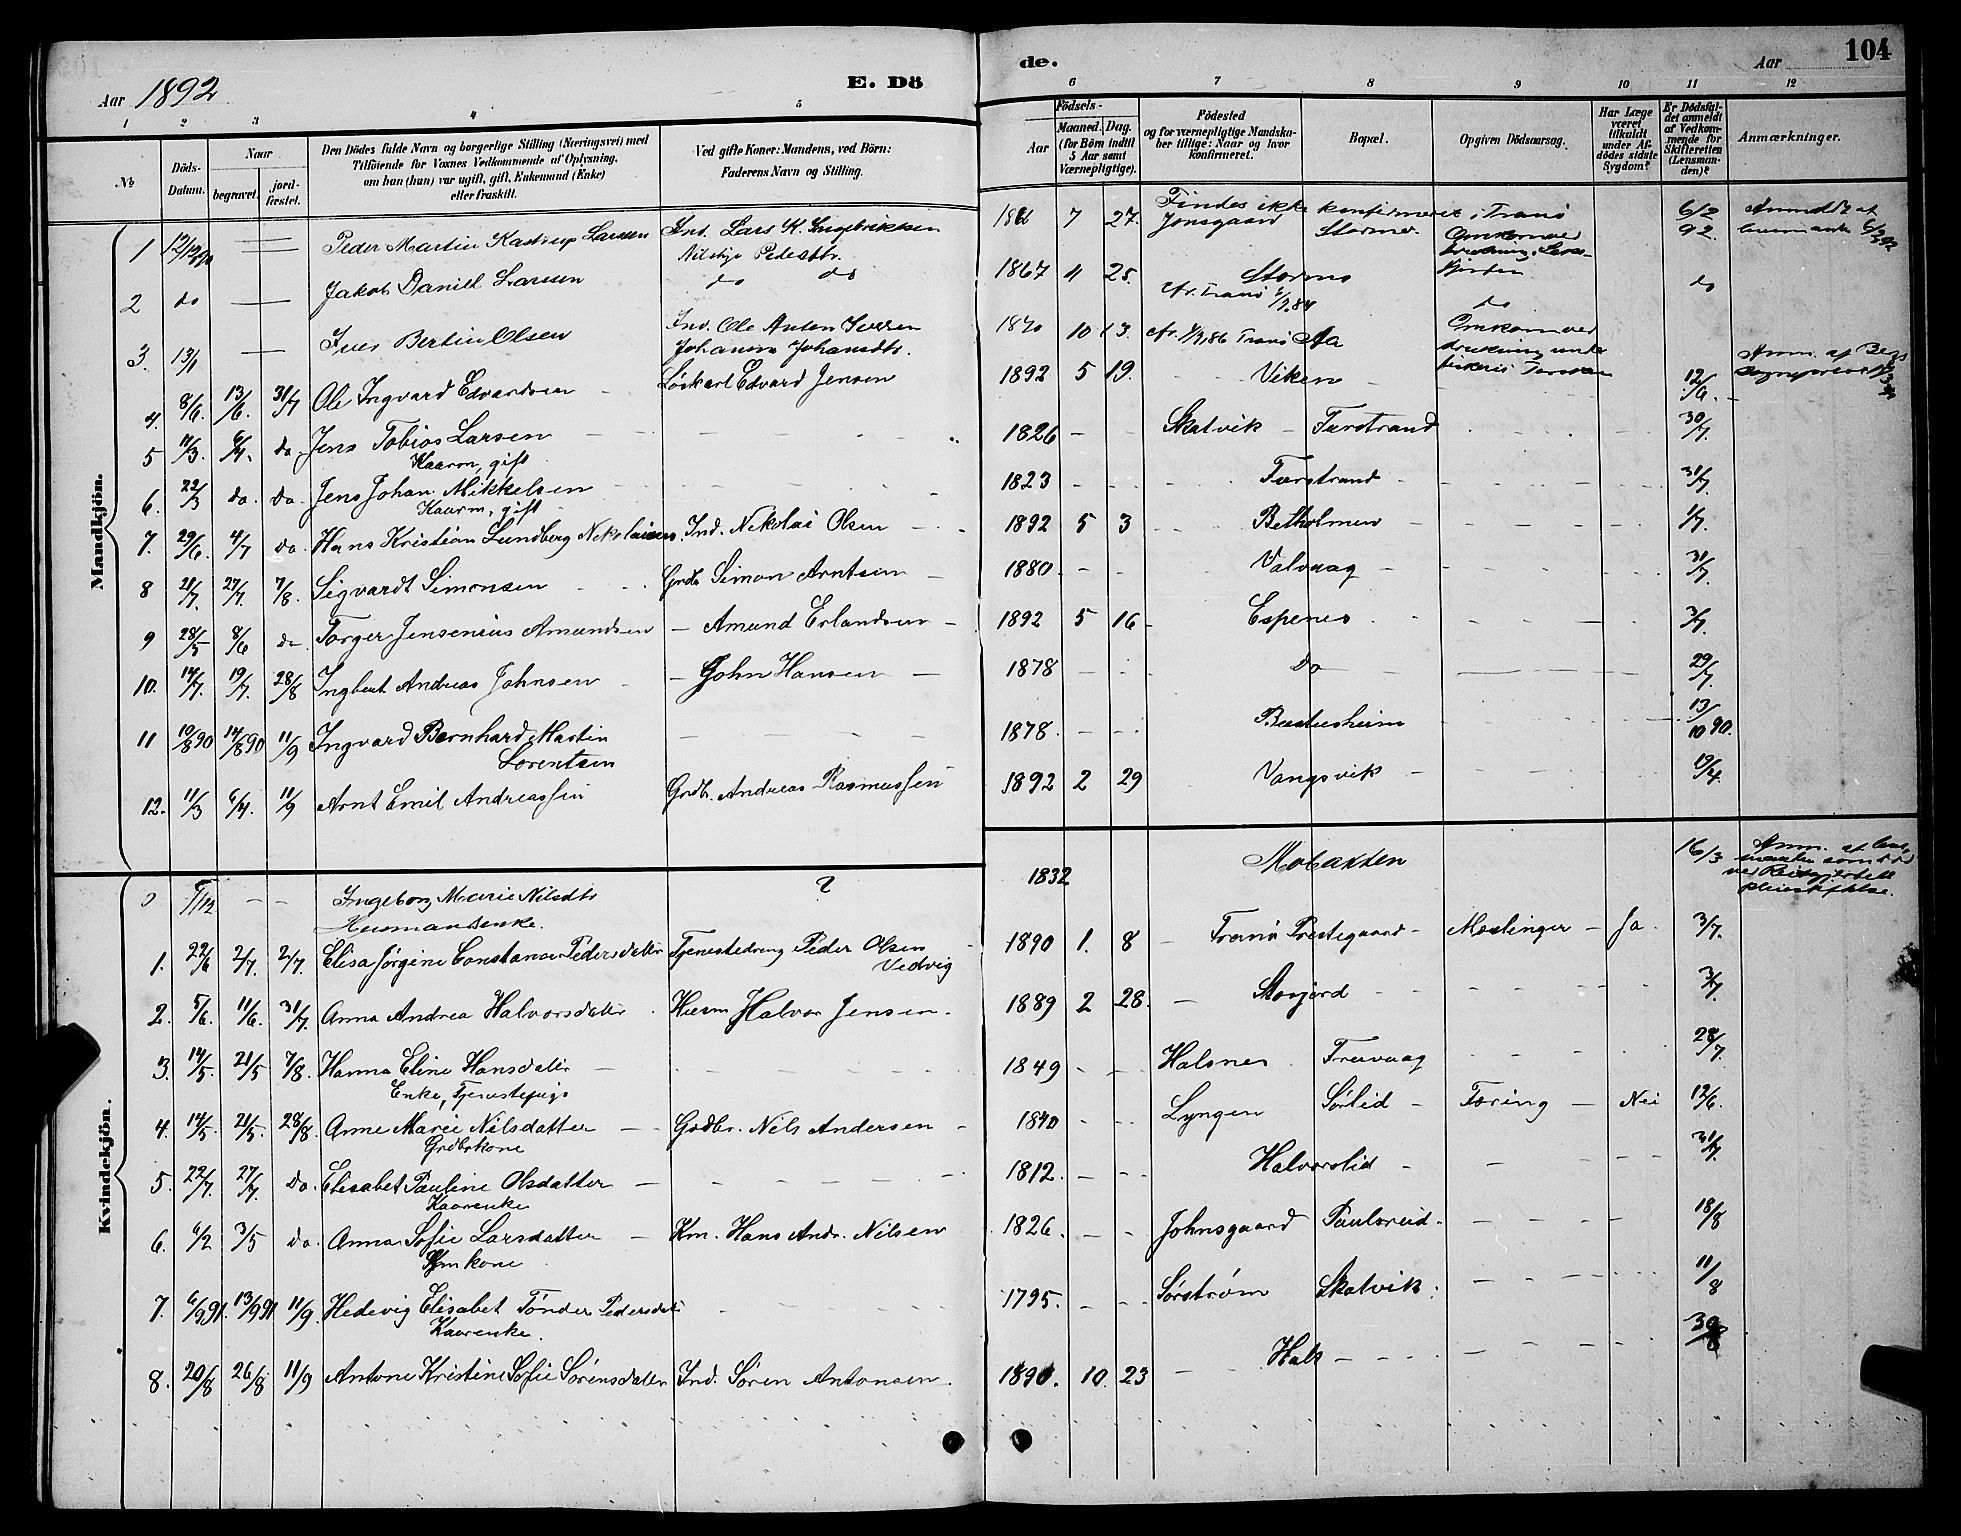 Aar 1892
E. Dö
de.
Aar
104
1 2 3 4 5 6 7 8 9 10 11 12
№
Döds-Datum.
Naar
begravet.
jord-fæstet.
Den Dödes fulde Navn og borgerlige Stilling (Næringsvei) med
Tilföiende for Voxnes Vedkommende af Oplysning,
om han (hun) var ugift, gift, Enkemand (Enke)
eller fraskilt.
Ved gifte Koner: Mandens, ved Börn:
Faderens Navn og Stilling.
Födsels-
Aar
Maaned. Dag.
(for Börn indtil
5 Aar samt
Værnepligtige).
Födested
og for værnepligtige Mandska-
ber tillige: Naar og hvor
konfirmeret.
Bopæl.
Opgiven Dödsaarsag.
Har Læge
været
tilkaldt
under Af-
dödes sidste
Sygdom?
Er Dödsfal-
det anmeldt
af Vedkom-
mende for
Skifteretten
(Lensman-
den)?
Anmærkninger.
Mandkjön.
1 Peder Martin Kastrup Larsen Ind. Lars K. Ingebriktsen 7 27. Findes ikke konfirmeret i Tranö 6/2 92.
Pedersdtr. Jonsgaard Stormo
2 do — — Jakob Daniel Larsen do do 1867 11 25. Stormo do do
3. 13/1 — Iver Bertin Olsen Ind. Ole Anton Iversen 1870 10 13. Tranö Aa Omkom ved
Johanna Johansdtr. drukning under
4. 8/6. 13/6. 31/7 Ole Ingvard Edvardsen Löskarl Edvard Jensen 1892 5 19. Viken 12/6.
5 11/3. 6/4. do Jens Tobias Larsen 1826 — — Skatvik — Farstrand 30/7.
Kaarm, gift
6. 22/3 do. do. Jens Johan Mikkelsen 1823 — — Farstrand 31/7.
Kaarm, gift
7. 29/6. 4/7 do. Hans Kristian Lundberg Nikolaisen. Ind. Nikolai Olsen 1892 5 3 Betholmen 1/7.
8 21/7. 27/7. 7/8. Sigvardt Simonsen Grdb. Simon Arntsen 1880 — — Valvaag 31/7.
9 28/5 8/6 do Torger Jensenius Amundsen — Amund Erlandsen 1892 5 16 Espenes 3/7.
10. 14/7. 19/7. 28/8 Ingbert Andreas Johnsen — John Hansen 1878 — — do 29/7.
11 10/8 90 14/8 90 11/9 Ingvard Bernhard Martin 1878. — — 13/10 90.
Lorentsen
12. 11/3 6/4. 11/9 Arnt Emil Andreassen Grdb. Andreas Rasmussen 1892 2 29 Vangsvik 19/4.
Kvindekjön.
— — Ingeborg Marie Nilsdtr ? 1832 Mobakken 16/3
Husmandsenke.
1. 22/6 2/7. 2/7. Elisa Jørgine Constanse Pedersdatter Tjenestedreng Peder Olsen 1890 1. 8 Tranö Prestegaard Meslinger Ja. 3/7.
Vedvig
2. 5/6. 11/6. 31/7. Anna Andrea Halvorsdatter Husm Halvor Jensen 1889 2 28. Storjord 3/7.
3. 14/5. 21/5 7/8. Hanna Eline Hansdatter 1849 — — Halsnes 28/7.
Enke, Tjenestepige
4. 14/5. 21/5. 28/8 Anne Marie Nilsdatter Grdbr. Nils Andersen 1840 Lyngen Sørlid Tæring — Nei 12/6.
Grdbrkone
5. 22/7. 27/7. do. Elisabet Pauline Olsdatter 1812. Halvorslid 31/7.
Kaarenke
6. 6/2 3/5 do. Anna Sofie Larsdatter Km. Hans Andr. Nilsen 1826. Johnsgaard Paulsreid 18/8
Kmkone
7. 6/9 91. 13/9 91 11/9. Hedevig Elisabet Tönder Pedersdatr 1795. Sørstrøm Skatvik 11/8
Kaarenke.
8. 20/8 26/8 11/9 Antone Kristine Sofie Sørensdatter Ind. Søren Antonsen 1890. 10. 23 Hals